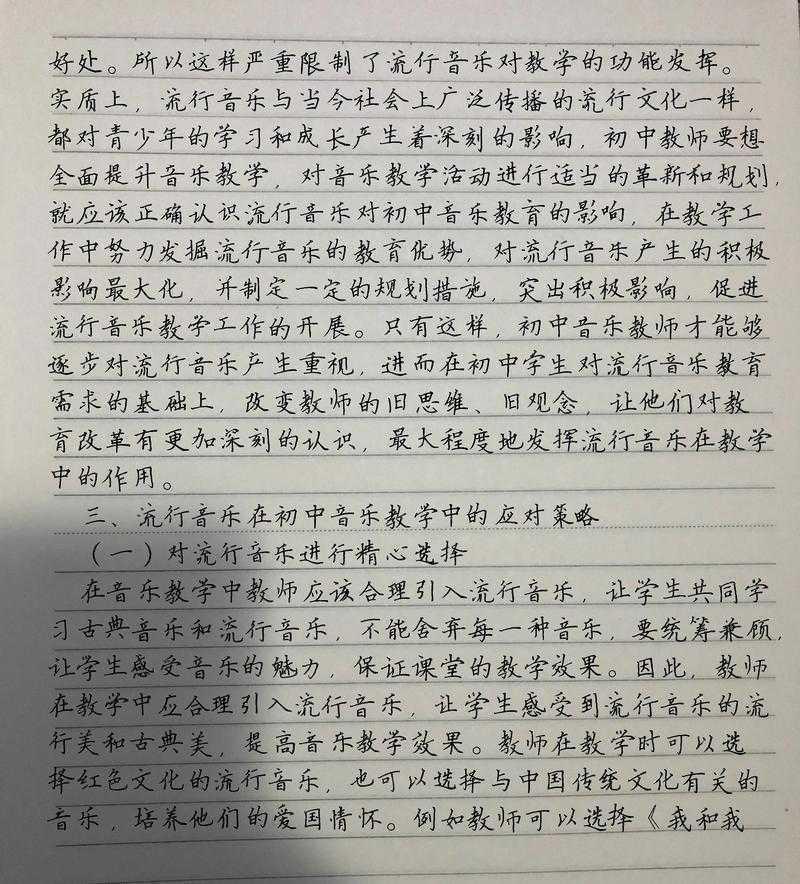 好处。所以这样严重限制了流行音乐对教学的功能发挥。
实质上，流行音乐与当今社会上广泛传播的流行文化一样，
都对青少年的学习和成长产生着深刻的影响，初中教师要想
全面提升音乐教学，对音乐教学活动进行适当的革新和规划，
就应该正确认识流行音乐对初中音乐教育的影响，在教学工
作中努力发掘流行音乐的教育优势，对流行音乐产生的积极
影响最大化，并制定一定的规划措施，突出积极影响，促进
流行音乐教学工作的开展。只有这样，初中音乐教师才能够
逐步对流行音乐产生重视，进而在初中学生对流行音乐教育
需求的基础上，改变教师的旧思维、旧观念，让他们对教
育改革有更加深刻的认识，最大程度地发挥流行音乐在教学
中的作用。
三、流行音乐在初中音乐教学中的应对策略
（一）对流行音乐进行精心选择
在音乐教学中教师应该合理引入流行音乐，让学生共同学
习古典音乐和流行音乐，不能舍弃每一种音乐，要统筹兼顾，
让学生感受音乐的魅力，保证课堂的教学效果。因此，教师
在教学中应合理引入流行音乐，让学生感受到流行音乐的流
行美和古典美，提高音乐教学效果。教师在教学时可以选
择红色文化的流行音乐，也可以选择与中国传统文化有关的
音乐，培养他们的爱国情怀。例如教师可以选择《我和我